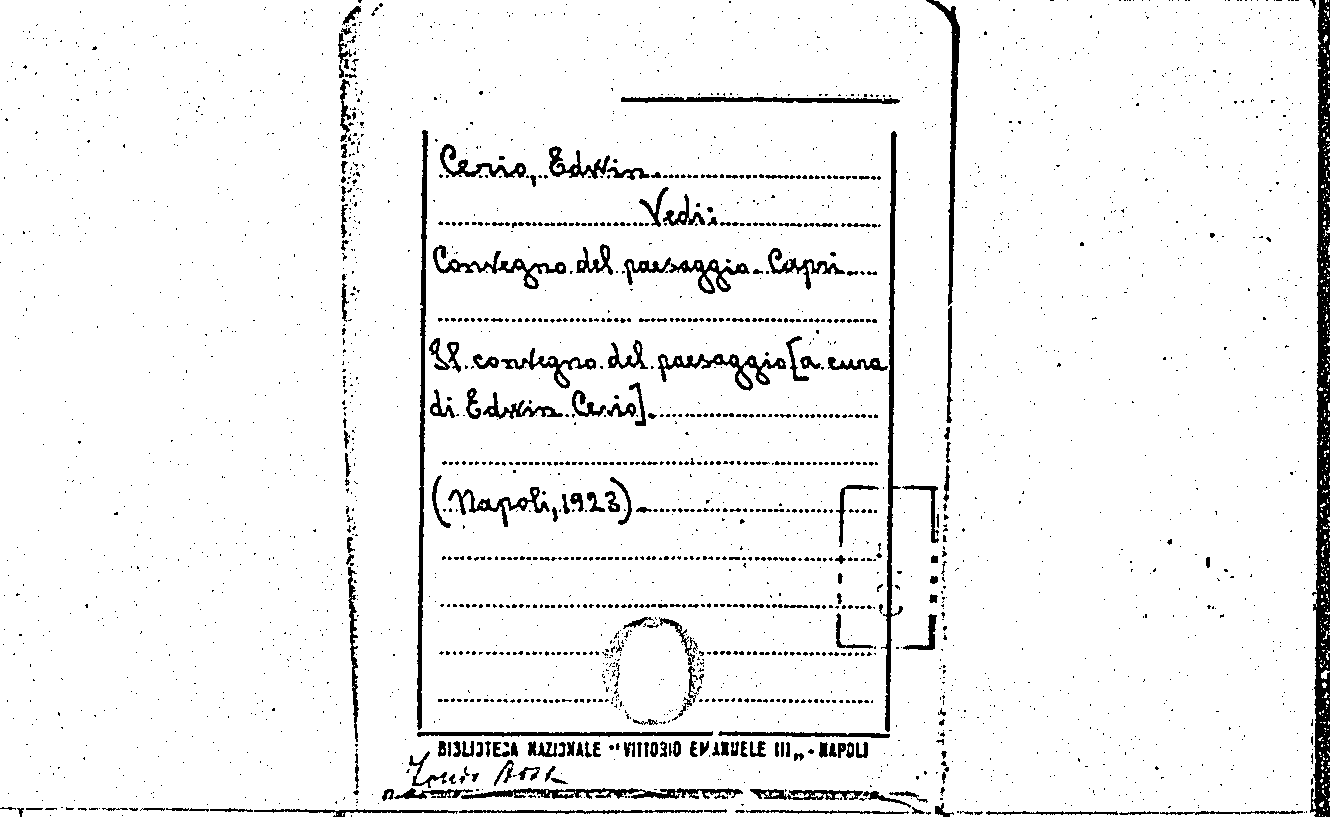 Cerio, Edwin.
Vedi:
Convegno del paesaggio. Capri
Il convegno del paesaggio [a cura
di Edwin Cerio].
(Napoli, 1923).
BIBLIOTECA NAZIONALE "VITTORIO EMANUELE III„ - NAPOLI